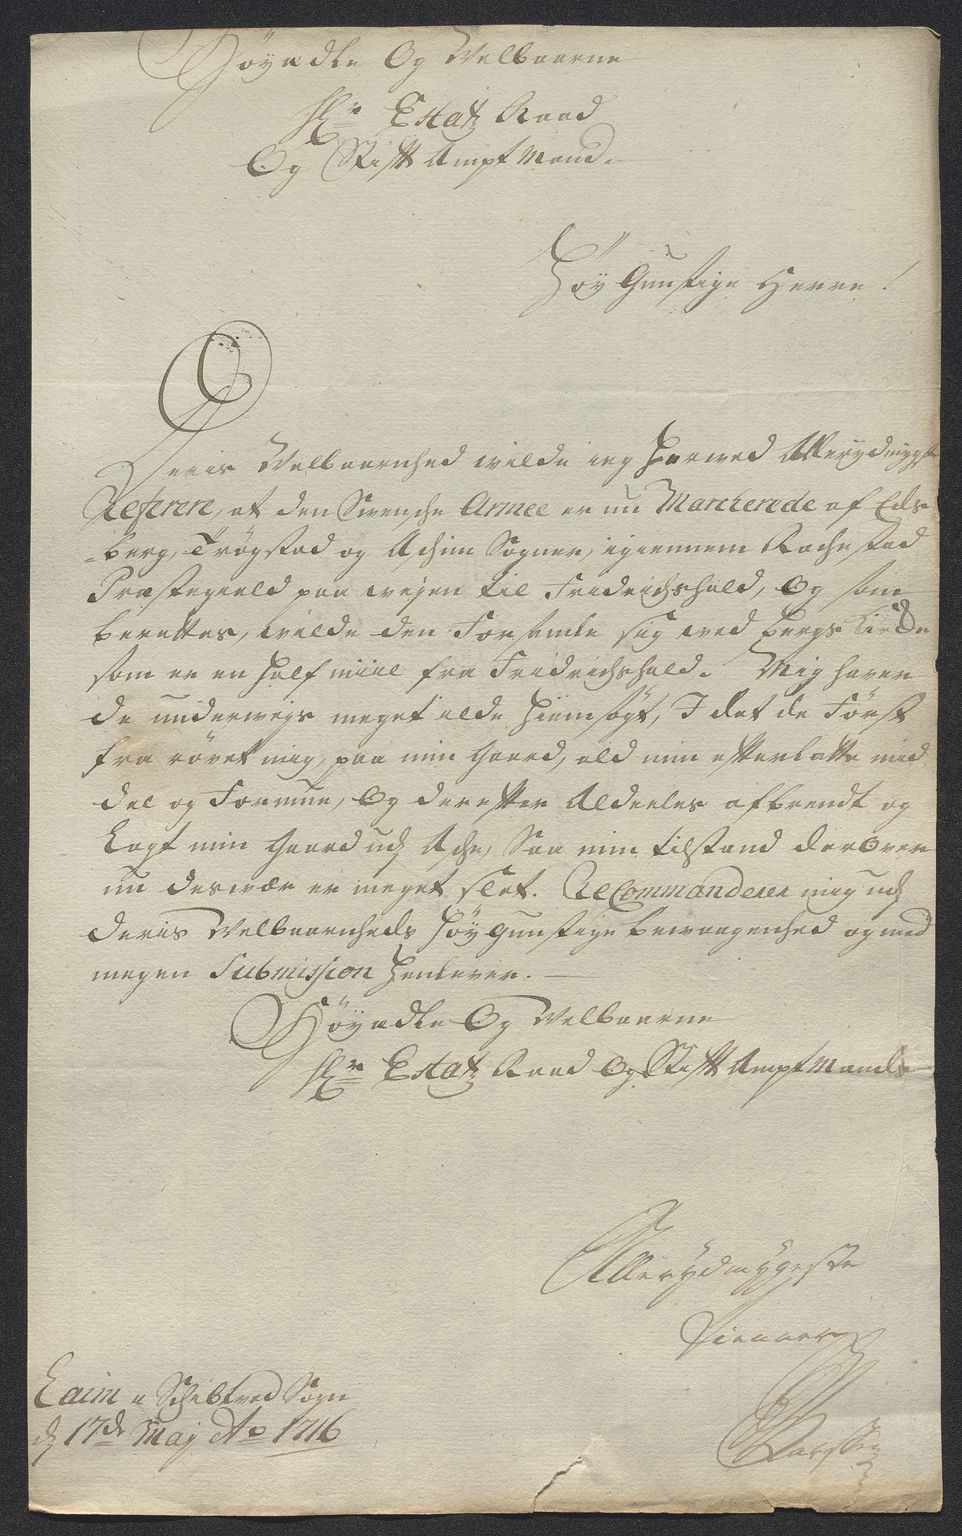 Höyædle Og Welbaarne
Hr Etatz Raad
Og Stift Ampt Mand.
Höy Gunstige Herre!
Deris Welbaarnhed wilde ieg herwed Allerydmygst
Referere, at den Svenske Armee er nu Marcherede af Eds-
-berg, Trögstad og Aschim Sogner, igiennem Rachestad
Præstegield paa weyen til Friderichshald, Og som
berettes, wilde den Forsamle sig wed bergs Kirche
som er en half miil fra Friderichshald. Mig hawer
de underweys meget ilde hiemsögt, I det de Först
fra röwet mig, paa min Gaard, ald min efterlatte mid
del og Formue, Og derefter Aldeeles afbrendt og
Lagt min Gaard udj Aske, Saa min tilstand derower
nu deswær er meget slet. ReCommanderer mig udj
deris Welbaarnheds höygunstige bewaagenhed og med
megen Submission henlewer.
Höyædle Og Welbaarne
Hr Etatz Raad Og Stift Ampt Mands
Allerydmygeste
Tienner
Laim i Schibtved Sogn
dj 17de Maj Ao 1716